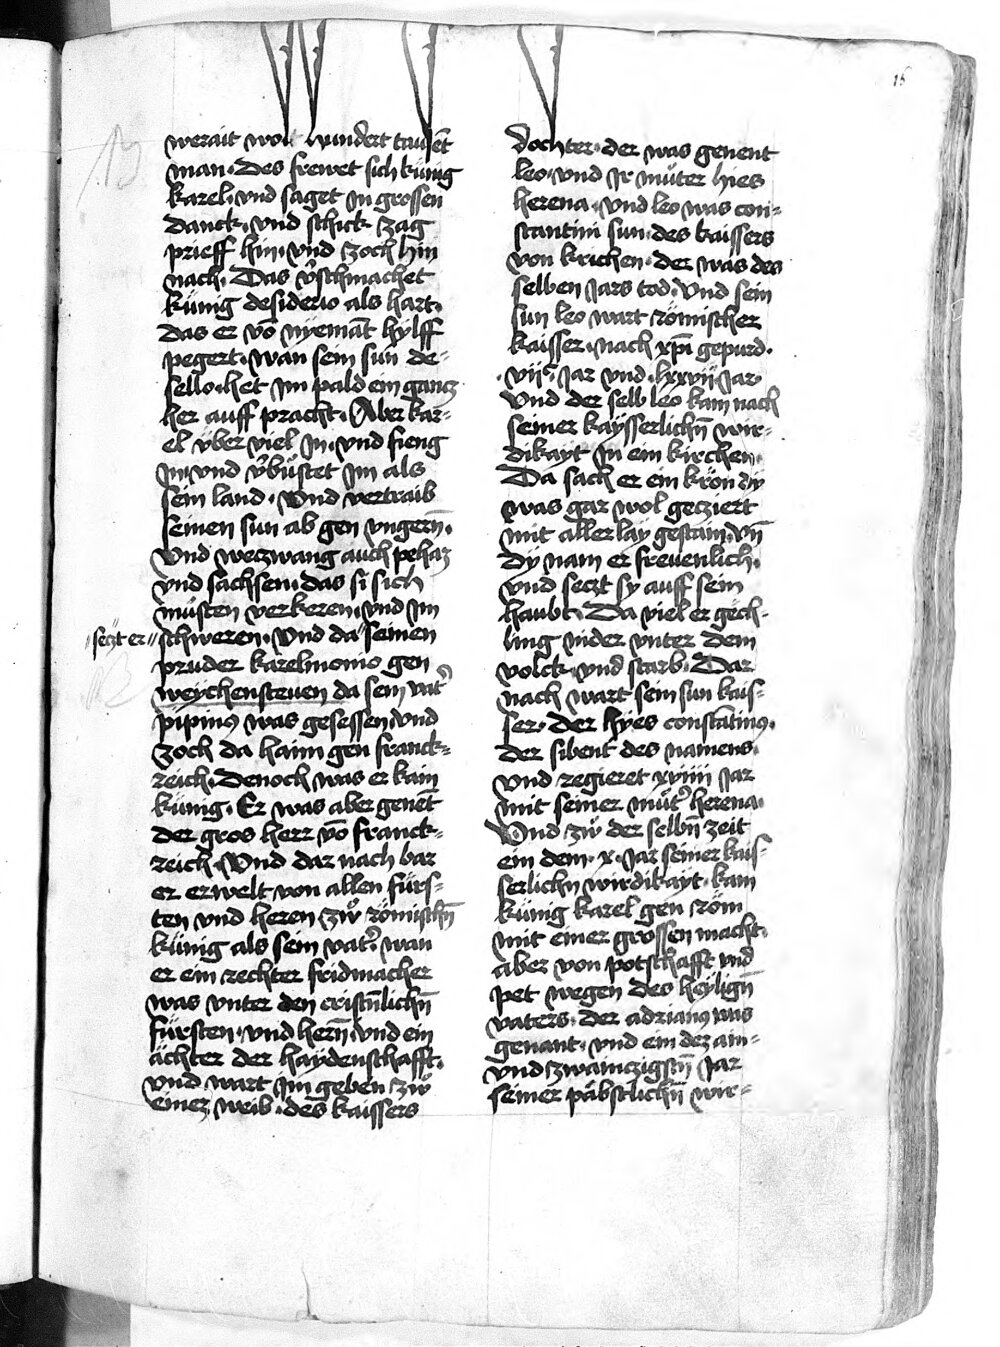 15
werait wol hundert tausēt
man. Des frewet sich künig
karel. vnd saget jn grossen
danck. vnd schick zag
prieff hin. vnd zoch hin
nach. Das v̄schmachet
künig desiderio als hart.
das er vō nyemāt hylff
pegert. wan sein sun de=
sello. het jm pald ein gancz
her auff pracht. Aber kar=
el vber viel jn. vnd fieng
jn. vnd v̄büstet jm als
sein land. Vnd vertraib
seinen sun ab gen vngern̄.
Vnd weczwang auch pehaz
vnd sachsen. das si sich
müsten verkeren. vnd jm
seczt er schweren. Vnd da seinen
pruder karelmonio gen
weychensteuen da sein vat͛
pipinꝰ was gesessen. vnd
zoch da haim gen franck=
reich. Denoch was er kain
künig. Er was aber genēt
der gros herr vō franck=
reich. Vnd dar nach bar
er erwelt von allen fürs=
ten vnd heren zẘ römischn̄
künig als sein vat͛. wan
er ein rechter fridmacher
was vnter den cristn̄lichn̄
fürsten. vnd hern̄. vnd ein
ächter der haydenschafft.
vnd wart jm geben zẘ
einez weib. des kaissers
dochter. der was genent
leo. vnd jr müter hies
herena. vnd leo was con=
stantini sun. des kaissers
von krichen. der was des
selben jars tod. Vnd sein
sun leo wart römischer
kaisser. nach xp̄i gepurd.
.vijᶜ. jar vnd .lxxvij. jar
Vnd der selb leo kam nach
seiner kaysserlichn̄ wir=
dikayt jn ein kirchen.
Da sach er ein krön dy
was gar wol gecziert
mit aller lay gestain. vn̄
dy nam er freuenlich.
vnd seczt sy auff sein
haubt. Da viel er gäch=
ling nider vnter dem
volck. vnd starb. Dar
nach wart sein sun kais=
ser. der hyes constātinꝰ.
der sibent des namens.
Vnd regieret xviiii jar
mit seiner müt͛ herena.
Vnd zẘ der selbn̄ zeit
ein dem .x. jar seiner kais=
serlichn wirdikayt. kam
künig karel gen röm
mit einer grossen macht.
aber von potschafft vnd
pet wegen des heylign̄
vaters. der adrianꝰ was
genant. vnd ein dez ain=
vnd zwainczigstn̄ jar
seiner päbstlichn̄ wir=